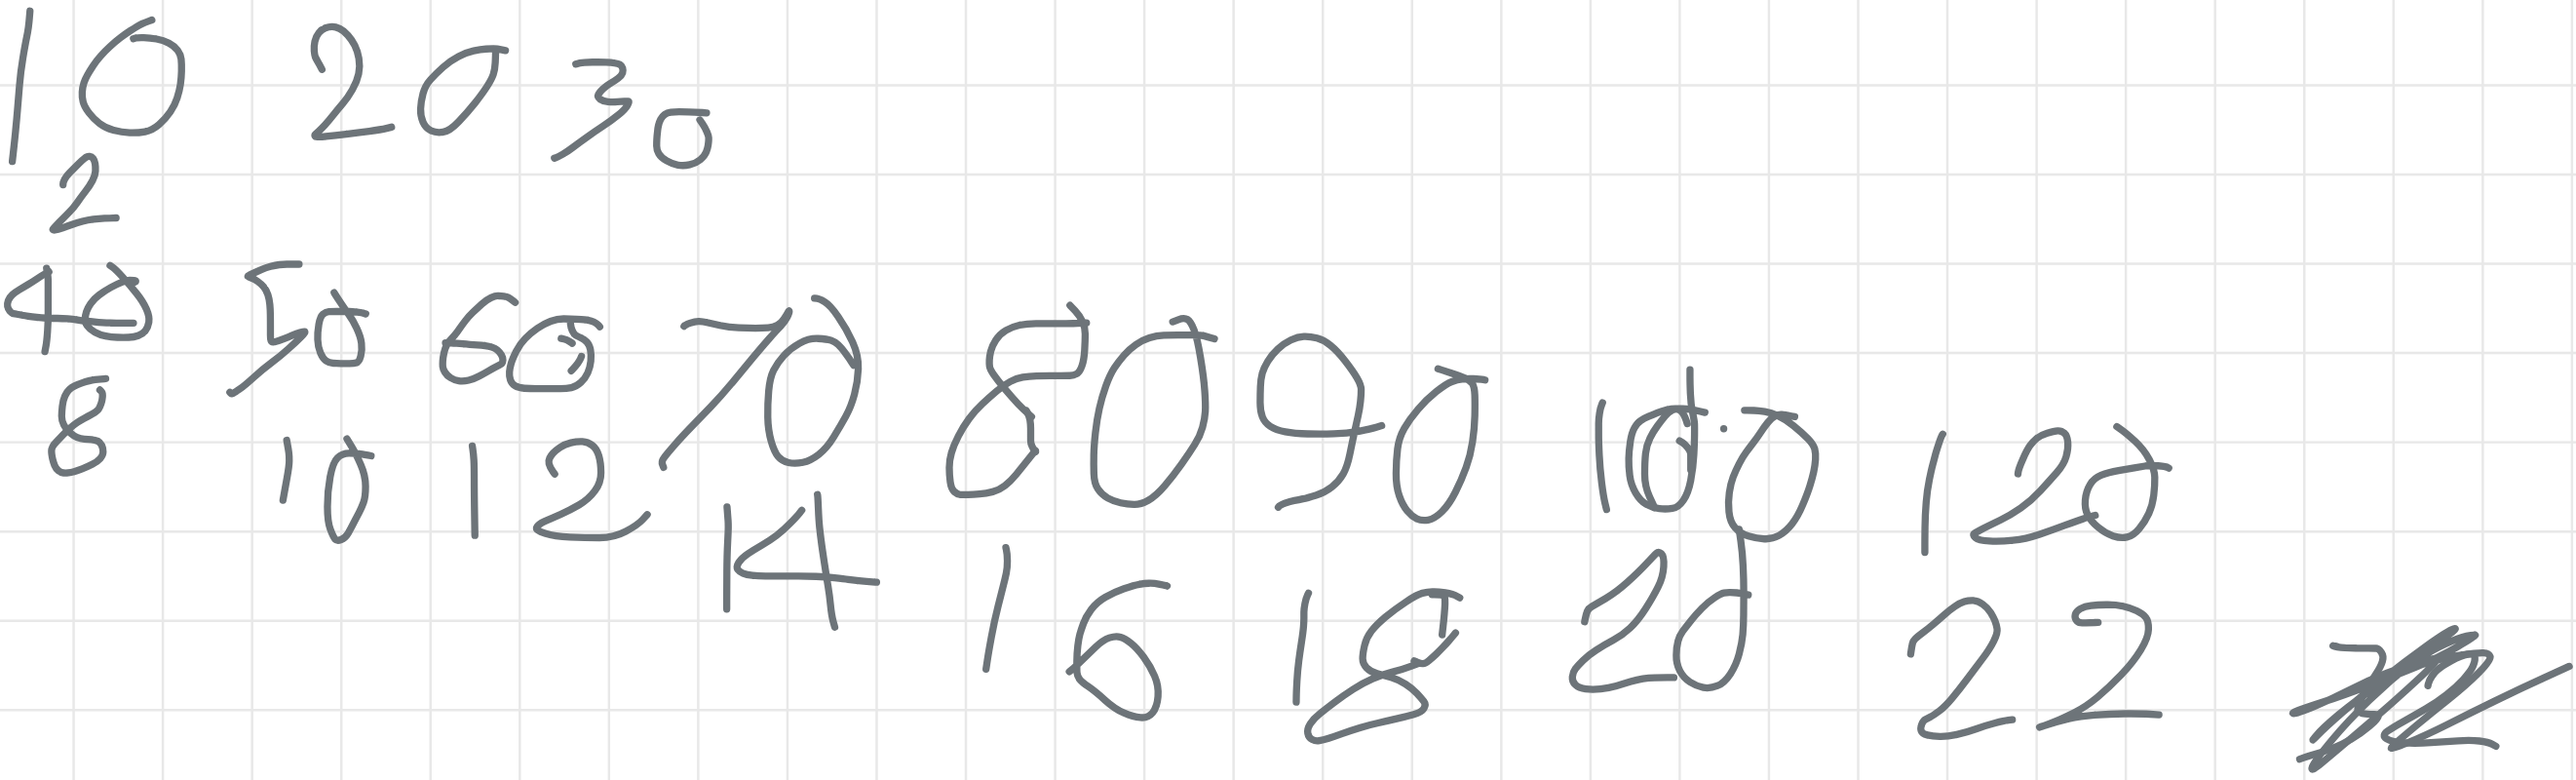 10 20 30
2
40 50 60 70 80 90 100 120
8 10 12 14 16 18 20 22